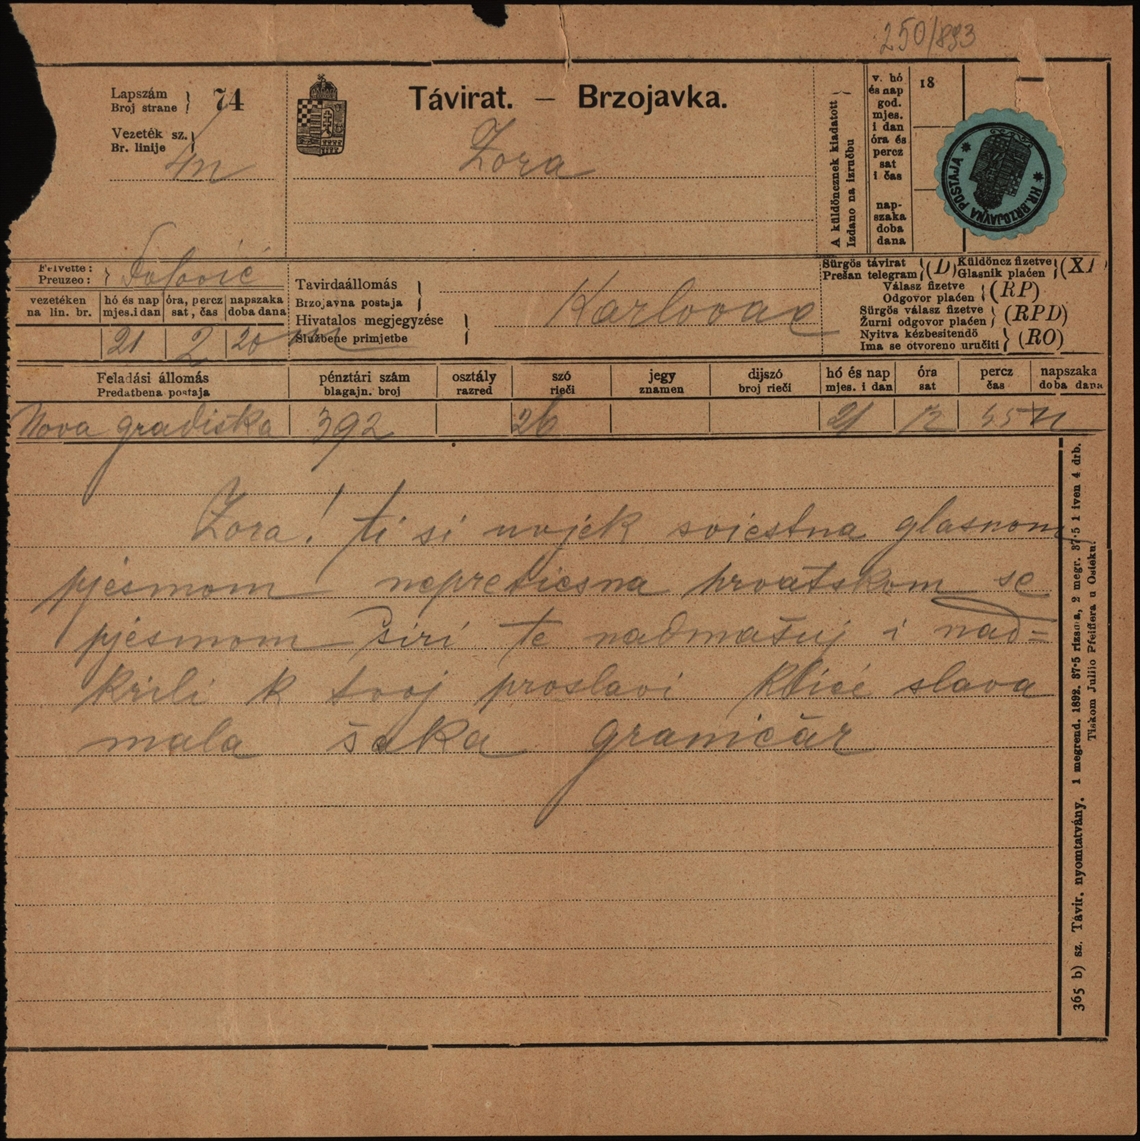 250/893
Lapszám
Broj strane
74
Vezeték sz.
Br. linije
Távirat. — Brzojavka.
Zora
A küldöncznek kiadatott
Izdano na izručbu
v. hó
és nap
god.
mjes.
i dan
óra és
percz
sat
i čas
nap-
szaka
doba
dana
18
HR. BRZOJAVNA POSTAJA
Felvette :
Preuzeo :
vezetéken
na lin. br.
hó és nap
mjes. i dan
óra, percz
sat, čas
napszaka
doba dana
21 2 20
Távirdaállomás
Brzojavna postaja
Hivatalos megjegyzése
Službene primjetbe
Karlovac
Sürgős távirat
Prešan telegram
(D)
Küldöncz fizetve
Glasnik plaćen
(XP
Válasz fizetve
Odgovor plaćen
(RP)
Sürgős válasz fizetve
Žurni odgovor plaćen
(RPD)
Nyitva kézbesitendő
Ima se otvoreno uručiti
(RO)
Feladási állomás
Predatbena postaja
pénztári szám
blagajn. broj
osztály
razred
szó
rieči
jegy
znamen
dijszó
broj rieči
hó és nap
mjes. i dan
óra
sat
percz
čas
napszaka
doba dana
Nova gradiska 392 26 21 12 35
Zora! ti si uvjek sviestna glasnom
pjesmom nepretiesna hrvatskom se
pjesmom širi te nadmašuj i nad=
krili k tvoj proslavi kliće slava
mala šaka graničar
365 b) sz. Távir. nyomtatvány. 1 megrend. 1892. 37·5 rizsma, 2 megr. 37·5 1 iven 4 drb.
Tiskom Julijo Pfeiffera u Osieku.